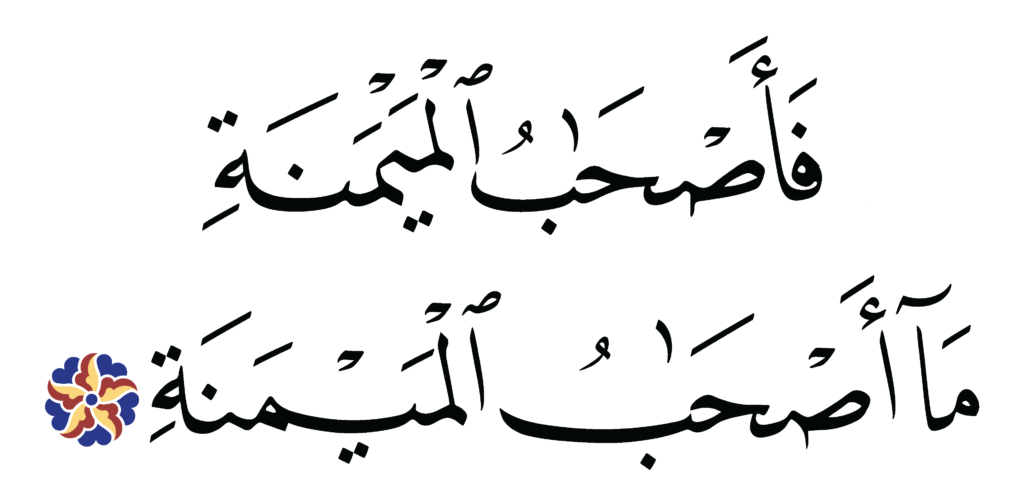 فَأَصْحَٰبُ ٱلْمَيْمَنَةِ
مَآ أَصْحَٰبُ ٱلْمَيْمَنَةِ